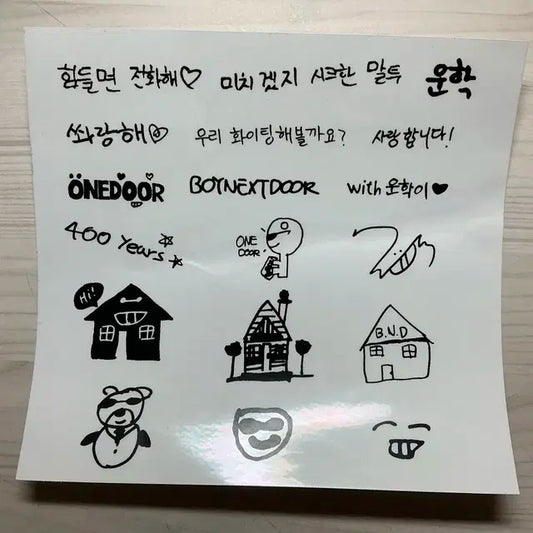 힘들면 전화해♡ 미치겠지 시크한 말투 운학
쏴랑해♡ 우리 화이팅해볼까요? 사랑합니다!
ONEDOOR BOYNEXTDOOR with 운학이♥
400 Years☆☆ ONE DOOR!
Hi!
B.N.D